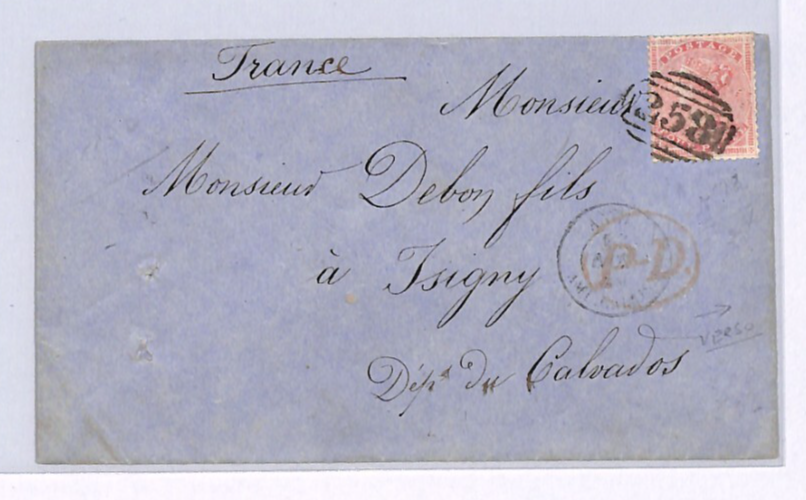 France
POSTAGE
Monsieur
258
Monsieur Debon fils
à Isigny
P.D.
verso
Dépt du Calvados